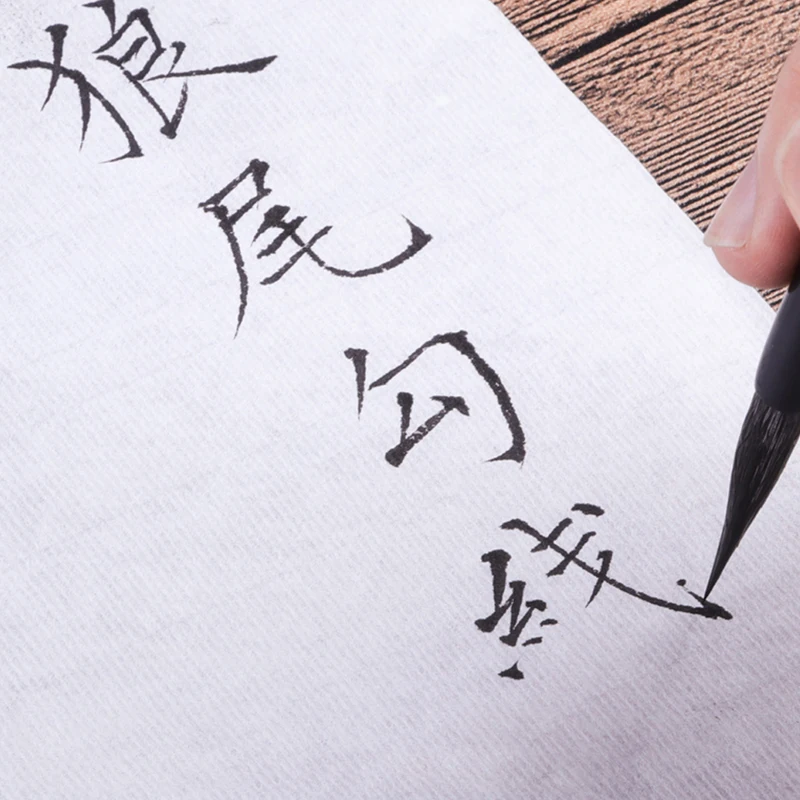 狼尾勾线